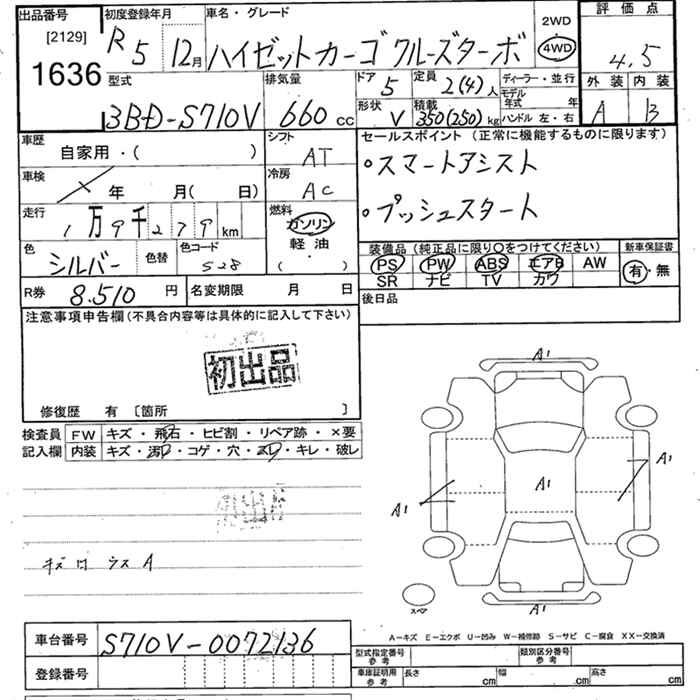 出品番号 初度登録年月 車名・グレード 2WD 評価点
[2129] R5 12月 ハイゼットカーゴ クルーズターボ 4WD 4.5
1636
型式 排気量 ドア 5 定員 2(4)人 ディーラー・並行 外装 内装
3BD-S710V 660cc 形状 V 積載 350(250)kg モデル年式 年 A B
ハンドル 左・右
車歴 シフト セールスポイント (正常に機能するものに限ります)
自家用・( ) AT ・スマートアシスト
車検 冷房
年 月(日) AC ・プッシュスタート
走行 燃料
1万9千279km ガソリン
軽油
色 色替 色コード ( ・ ) 装備品(純正品に限り○をつけてください) 新車保証書
シルバー 528 PS PW ABS エアB AW 有・無
SR ナビ TV カワ
R券 8.510円 名変期限 月 日 後日品
注意事項申告欄(不具合内容等は具体的に記入して下さい)
初出品
修復歴 有 〔箇所 〕
検査員 FW キズ・飛石・ヒビ割・リペア跡・×要
記入欄 内装 キズ・汚レ・コゲ・穴・スレ・キレ・破レ
A1
A1
A1
A1
キズ
ウスA
スペア
A1
A-キズ E-エクボ U-凹み W-補修跡 S-サビ C-腐食 XX-交換済
車台番号 S710V-0072136
型式指定番号 参考 類別区分番号 参考
登録番号 車庫証明用 参考 長さ cm 幅 cm 高さ cm